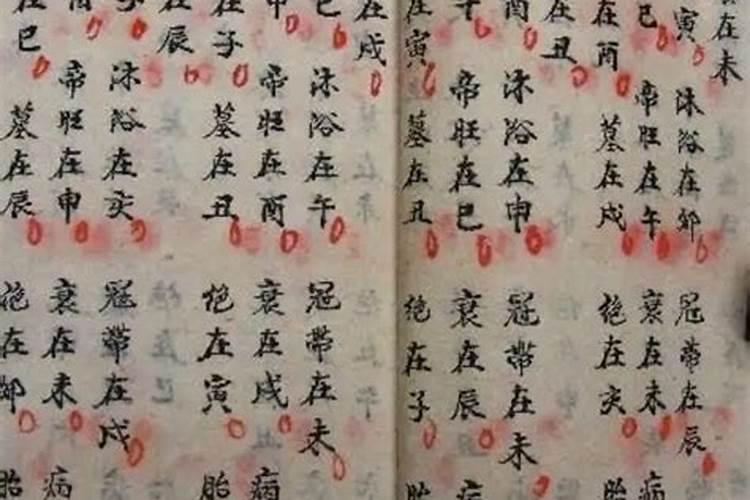 在未
寅
巳
在酉
在丑
酉
在寅
在戌
巳
在子
在辰
在巳
沐浴在卯
帝旺在午
墓在戌
沐浴在申
帝旺在巳
墓在丑
沐浴在午
帝旺在酉
墓在丑
沐浴在亥
帝旺在申
墓在辰
冠帶在辰
衰在未
绝在亥
冠帶在未
衰在辰
绝在子
冠帶在未
衰在戌
绝在寅
冠帶在戌
衰在未
绝在卯
病
胎
病
胎
病
胎
病
胎